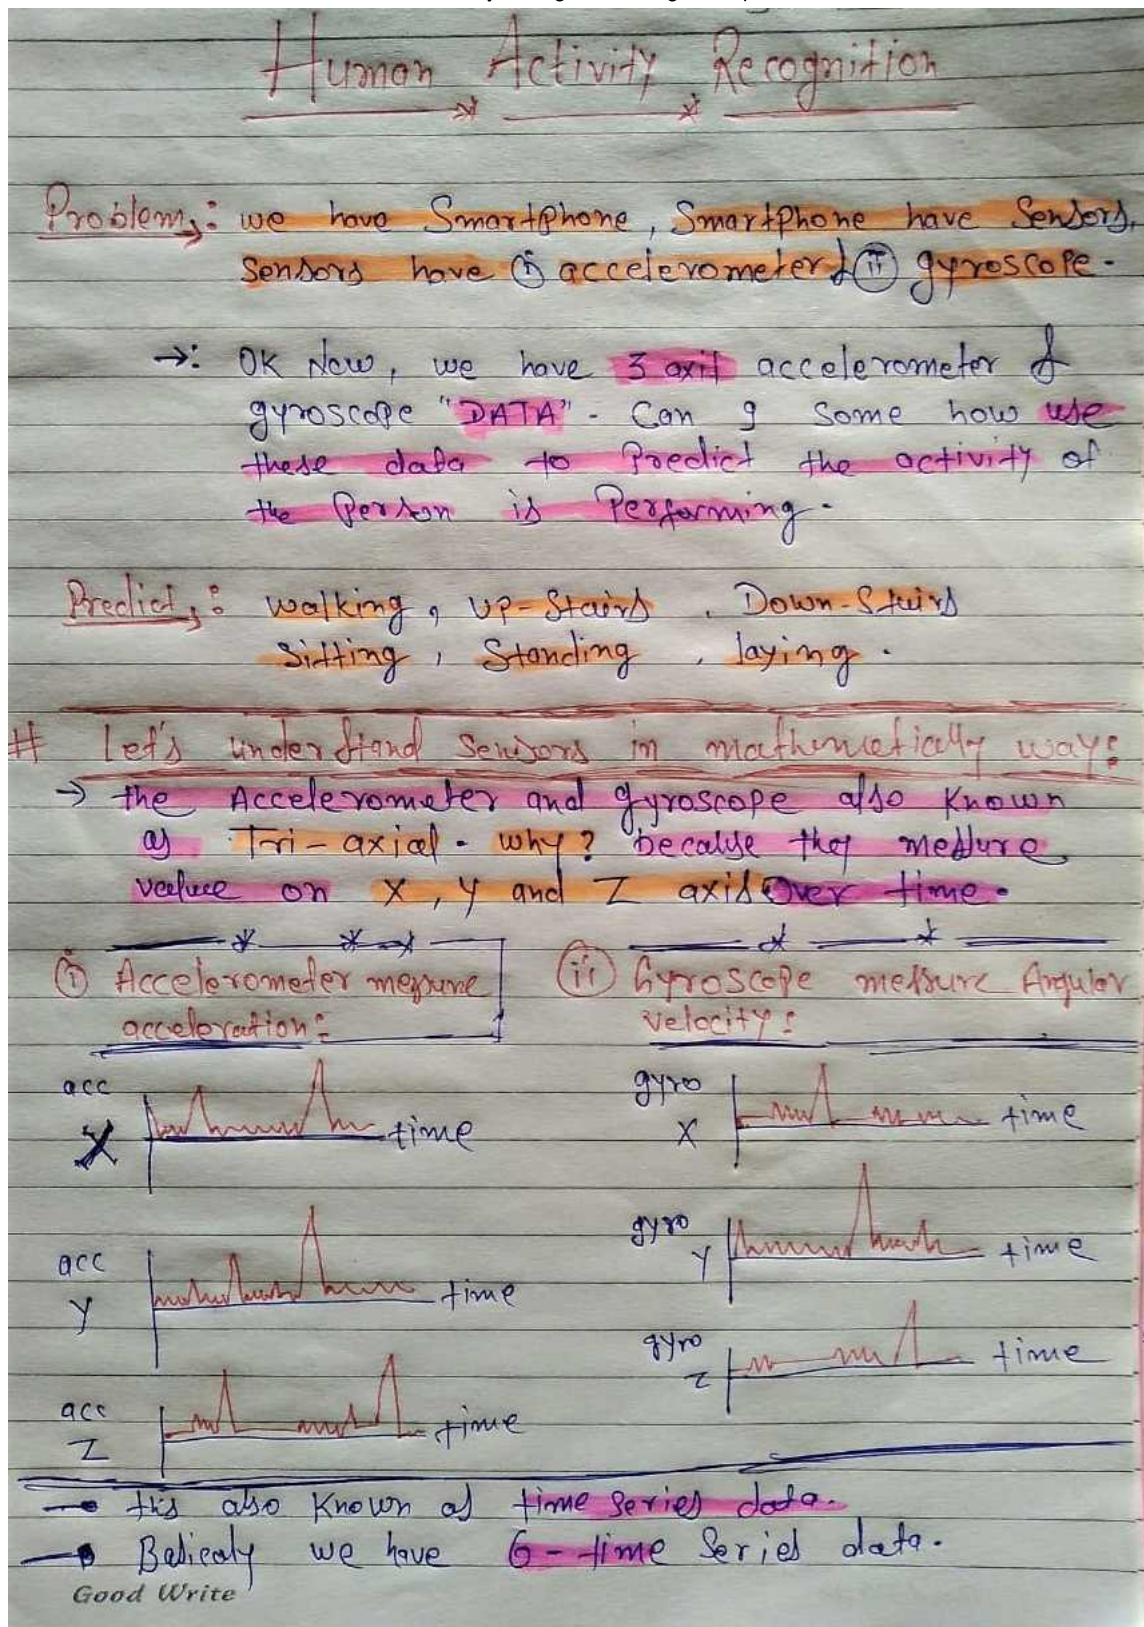 Human Activity Recognition
Problem: we have Smartphone, Smartphone have Sensors,
Sensors have (i) accelerometer & (ii) gyroscope.
→: OK Now, we have 3 axis accelerometer &
gyroscope "DATA". Can I some how use
these data to Predict the activity of
the Person is Performing.
Predict: walking, UP-Stairs, Down-Stairs
Sitting, Standing, laying.
# Let's understand Sensors in mathematically way:
→ the Accelerometer and gyroscope also Known
as Tri-axial. why? because they messure
value on X, Y and Z axis over time.
(i) Accelerometer messure
acceleration:
(ii) Gyroscope messure Angular
velocity:
acc
X
time
gyro
X
time
acc
Y
time
gyro
Y
time
acc
Z
time
gyro
Z
time
this also Known as time series data.
Basicaly we have 6-time Series data.
Good Write